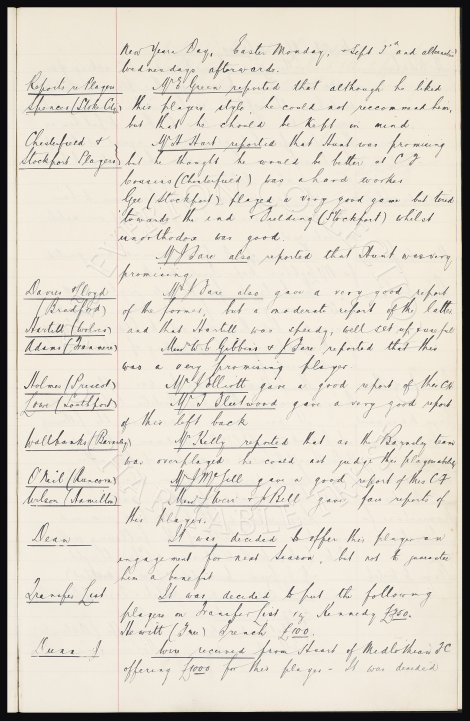 New Years Day, Easter Monday, Sept 5th and alternate
Wednesdays afterwards.
Reports re Players
Mr E Green reported that although he liked
Spencer (Stoke City)
this players style, he could not reccommend him,
but that he should be kept in mind.
Chesterfield &
Mr H Hart reported that Hunt was promising
Stockport Players
but he thought he would be better at C F
Cousins (Chesterfield) was a hard worker
Gee (Stockport) played a very good game but tired
towards the end & Fielding (Stockport) whilst
unorthodox was good.
Mr J Fare also reported that Hunt was very
promising.
Davies & Lloyd
Mr J Fare also gave a very good report
(Bradford)
of the former, but a moderate report of the latter
Hartill (Wolves)
and that Hartill was speedy, well set up & useful
Adams (Tranmere)
Messrs W C Gibbins & J Fare reported that this
was a very promising player.
Holmes (Prescot)
Mr J Elliott gave a good report of this C H
Lowe (Southport)
Mr T Fleetwood gave a very good report
of this left back
Wallbanks (Barnsley)
Mr Kelly reported that as the Barnsley team
was overplayed he could not judge this players ability
O'Neil (Runcorn)
Mr J McGill gave a good report of this C F
Wilson (Hamilton)
Messrs Weir & J Bell gave fair reports of
this player.
Dean
It was decided to offer this player an
engagement for next season, but not to guarantee
him a benefit
Transfer List
It was decided to put the following
players on Transfer List viz Kennedy £750.
Hewitt (Free) French £100.
Dunn J
Were received from Heart of Medlothian F C
offering £1000 for this player - It was decided